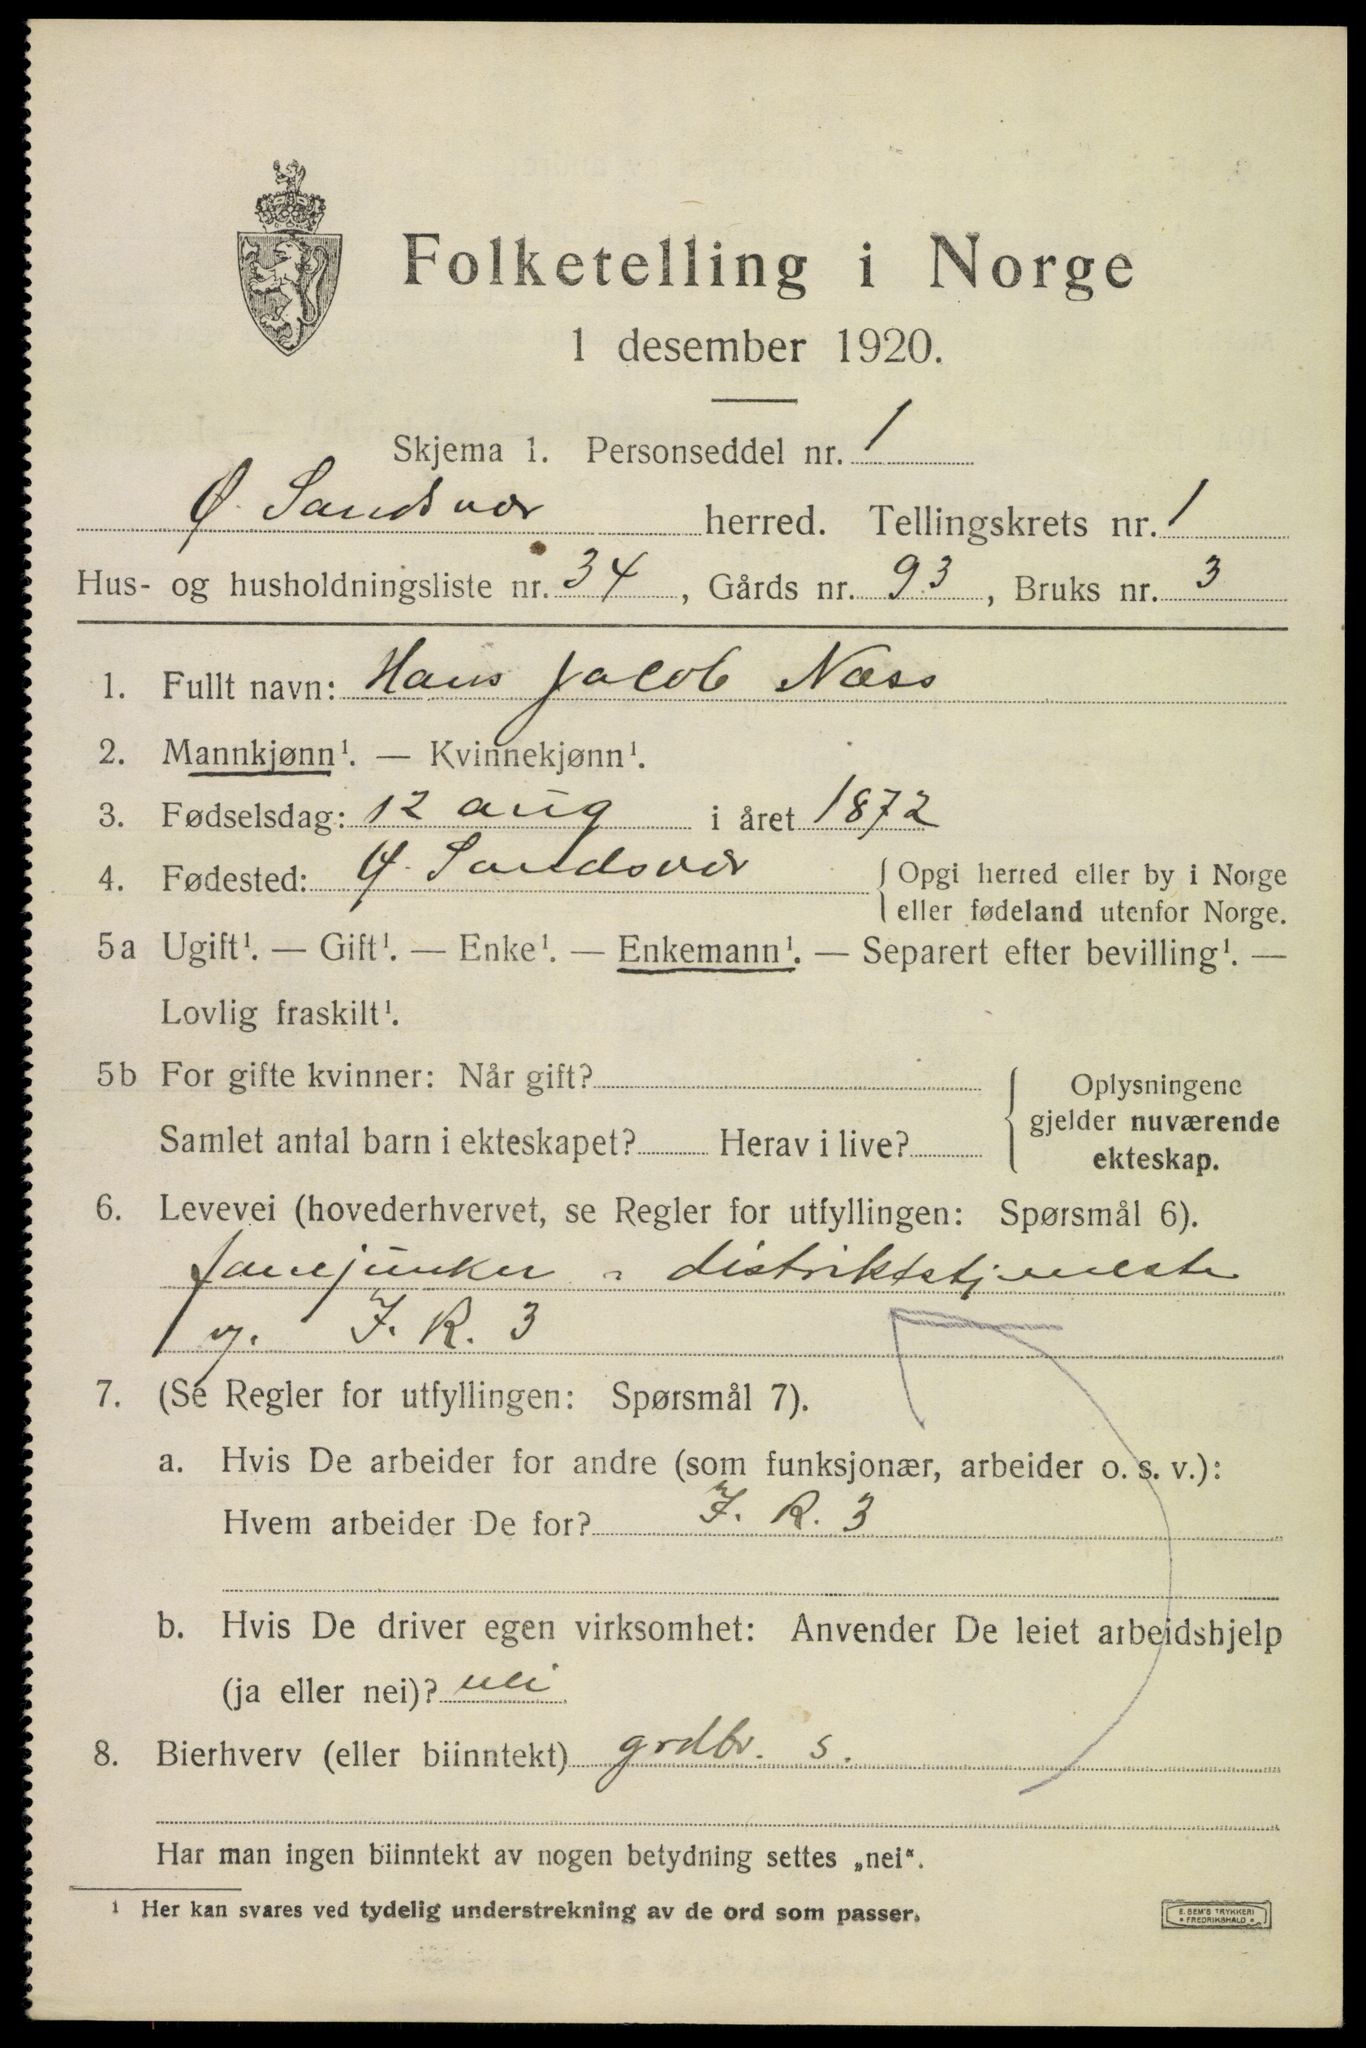 Folketelling i Norge
1 desember 1920.
Skjema 1. Personseddel nr. 1
Ø. Sandsvær herred. Tellingskrets nr. 1
Hus- og husholdningsliste nr. 34, Gårds nr. 93, Bruks nr. 3
1. Fullt navn: Hans Jacob Næss
2. Mannkjønn¹. — Kvinnekjønn¹.
3. Fødselsdag: 12 aug i året 1872
4. Fødested: Ø. Sandsvær { Opgi herred eller by i Norge
eller fødeland utenfor Norge.
5a Ugift¹. — Gift¹. — Enke¹. — Enkemann¹. — Separert efter bevilling¹. —
Lovlig fraskilt¹.
5b For gifte kvinner: Når gift? Oplysningene
gjelder nuværende
Samlet antal barn i ekteskapet? Herav i live?
ekteskap.
6. Levevei (hovederhvervet, se Regler for utfyllingen: Spørsmål 6).
fanejunker distriktstjeneste
v. J. R. 3
7. (Se Regler for utfyllingen: Spørsmål 7).
a. Hvis De arbeider for andre (som funksjonær, arbeider o. s. v.):
Hvem arbeider De for? J. R. 3
b. Hvis De driver egen virksomhet: Anvender De leiet arbeidshjelp
(ja eller nei)? nei
8. Bierhverv (eller biinntekt) grdbr. s.
Har man ingen biinntekt av nogen betydning settes „nei“.
¹ Her kan svares ved tydelig understrekning av de ord som passer.
E. SEM'S TRYKKERI
FREDRIKSHALD